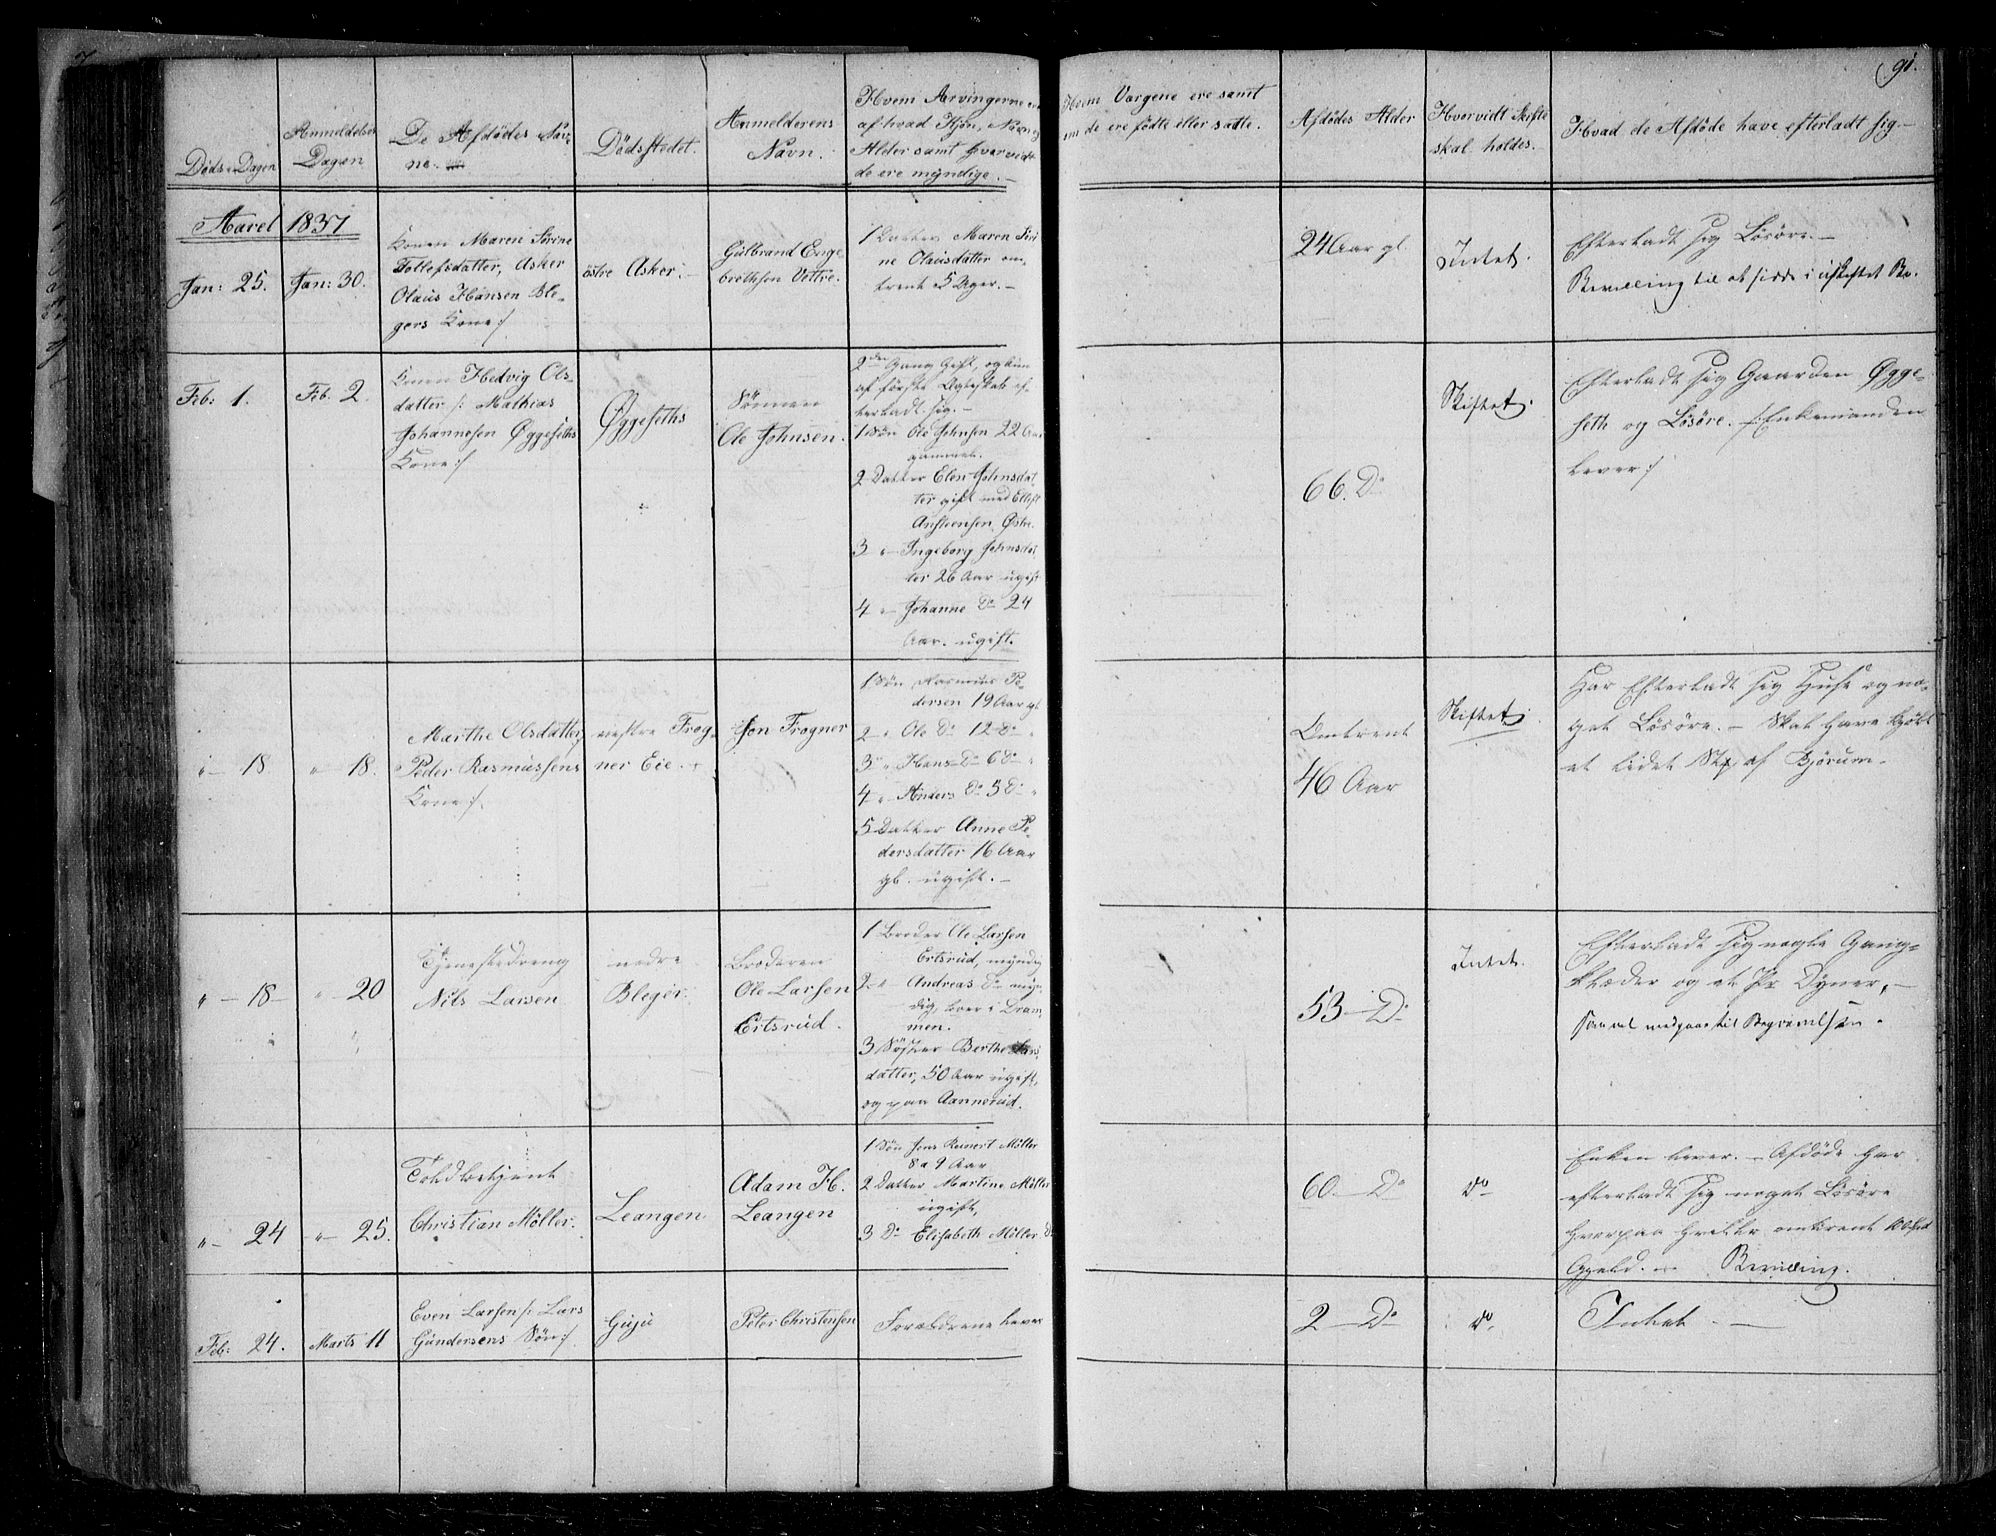 91.
Døds-Dagen
Anmeldelses Dagen
De Afdødes Nav-
ne.
Dødsstedet.
Anmelderens
Navn.
Hvem Arvingerne ere
af hvad Kjøn, Navn og
Alder samt hvorvidt
de ere myndige.
Hvem Værgene ere samt
om de ere fødte eller satte.
Afdødes Alder
Hvorvidt Skifte
skal holdes.
Hvad de Afdøde have efterladt sig.
Aaret 1837
Jan: 25.
Jan: 30.
Konen Maren Sørine
Tollefsdatter, Asker
Olaus Hansen Ble-
gers Kone :/
østre Asker.
Gulbrand Enge
brethsen Vettre.
1 Datter Maren Siri
ne Olausdatter om
trent 5 Uger.
24 Aar gl.
Intet.
Efterladt sig Løsøre.
Bevilling til at sidde i uskiftet Bo.
Feb: 1.
Feb. 2.
Konen Hedvig Ols-
datter /: Mathias
Johannesen Øggeseths
Kone :/
Øggeseths
Sønnen
Ole Johnsen.
2den Gang Gift, og kun
af første Ægteskab ef-
terladt sig.
1 Søn Ole Johnsen 22 Aar
gammel.
2 Datter Elen Johnsdat-
ter gift med Ellef
Anstensen Østre
3 " Ingeborg Johnsdat
ter 26 Aar ugift
4 " Johanne Do 24
Aar. ugift.
66. Do
Skiftet.
Efterladt sig Gaarden Øgge-
seth og Løsøre. /: Enkemanden
lever :/
" 18
" 18.
Marthe Olsdatter
Peder Rasmussens
Kone :/.
nestre Frog-
ner Eie.
Jon Frogner
1 Søn Rasmus Pe-
dersen 19 Aar gl
2 " Ole Do 12 Do "
3 " Hans Do 6 Do "
4 " Anders Do 3 Do "
5 Datter Anne Pe-
dersdatter 16 Aar
gl. ugift.
Omtrent
46 Aar
Skiftet.
Har Efterladt sig Huse og no-
get Løsøre. Skal have kjøbt
et lidet Stk af Bjørum.
" 18
" 20
Tjenestedreng
Nils Larsen
nedre
Bleger.
Broderen
Ole Larsen
Ertsrud.
1 Broder Ole Larsen
Ertsrud, myndig
2 " Andreas Do myn-
dig, lever i Dram-
men.
3 Søster Berthe Lars
datter, 50 Aar ugift,
og paa Aannerud.
53 Do
Intet.
Efterladt sig nogle Gang-
klæder og et Pr Dyner,
som vel medgaar til Begravelsen.
" 24
" 25.
Toldbetjent
Christian Møller.
Leangen
Adam H.
Leangen
1 Søn Jens Reinert Møller
8 a 9 Aar
2 Datter Martine Møller
ugift,
3 Do Elisabeth Møller Do
60. Do
Do
Enken lever. Afdøde har
efterladt sig noget Løsøre
hvorpaa hefter omtrent
Gjeld. Bevilling.
Feb: 24.
Marts 11
Even Larsen /: Lars
Gundersens Søn :/
Guju
Peter Christensen
Forældrene lever
2 Do
Do
Intet.